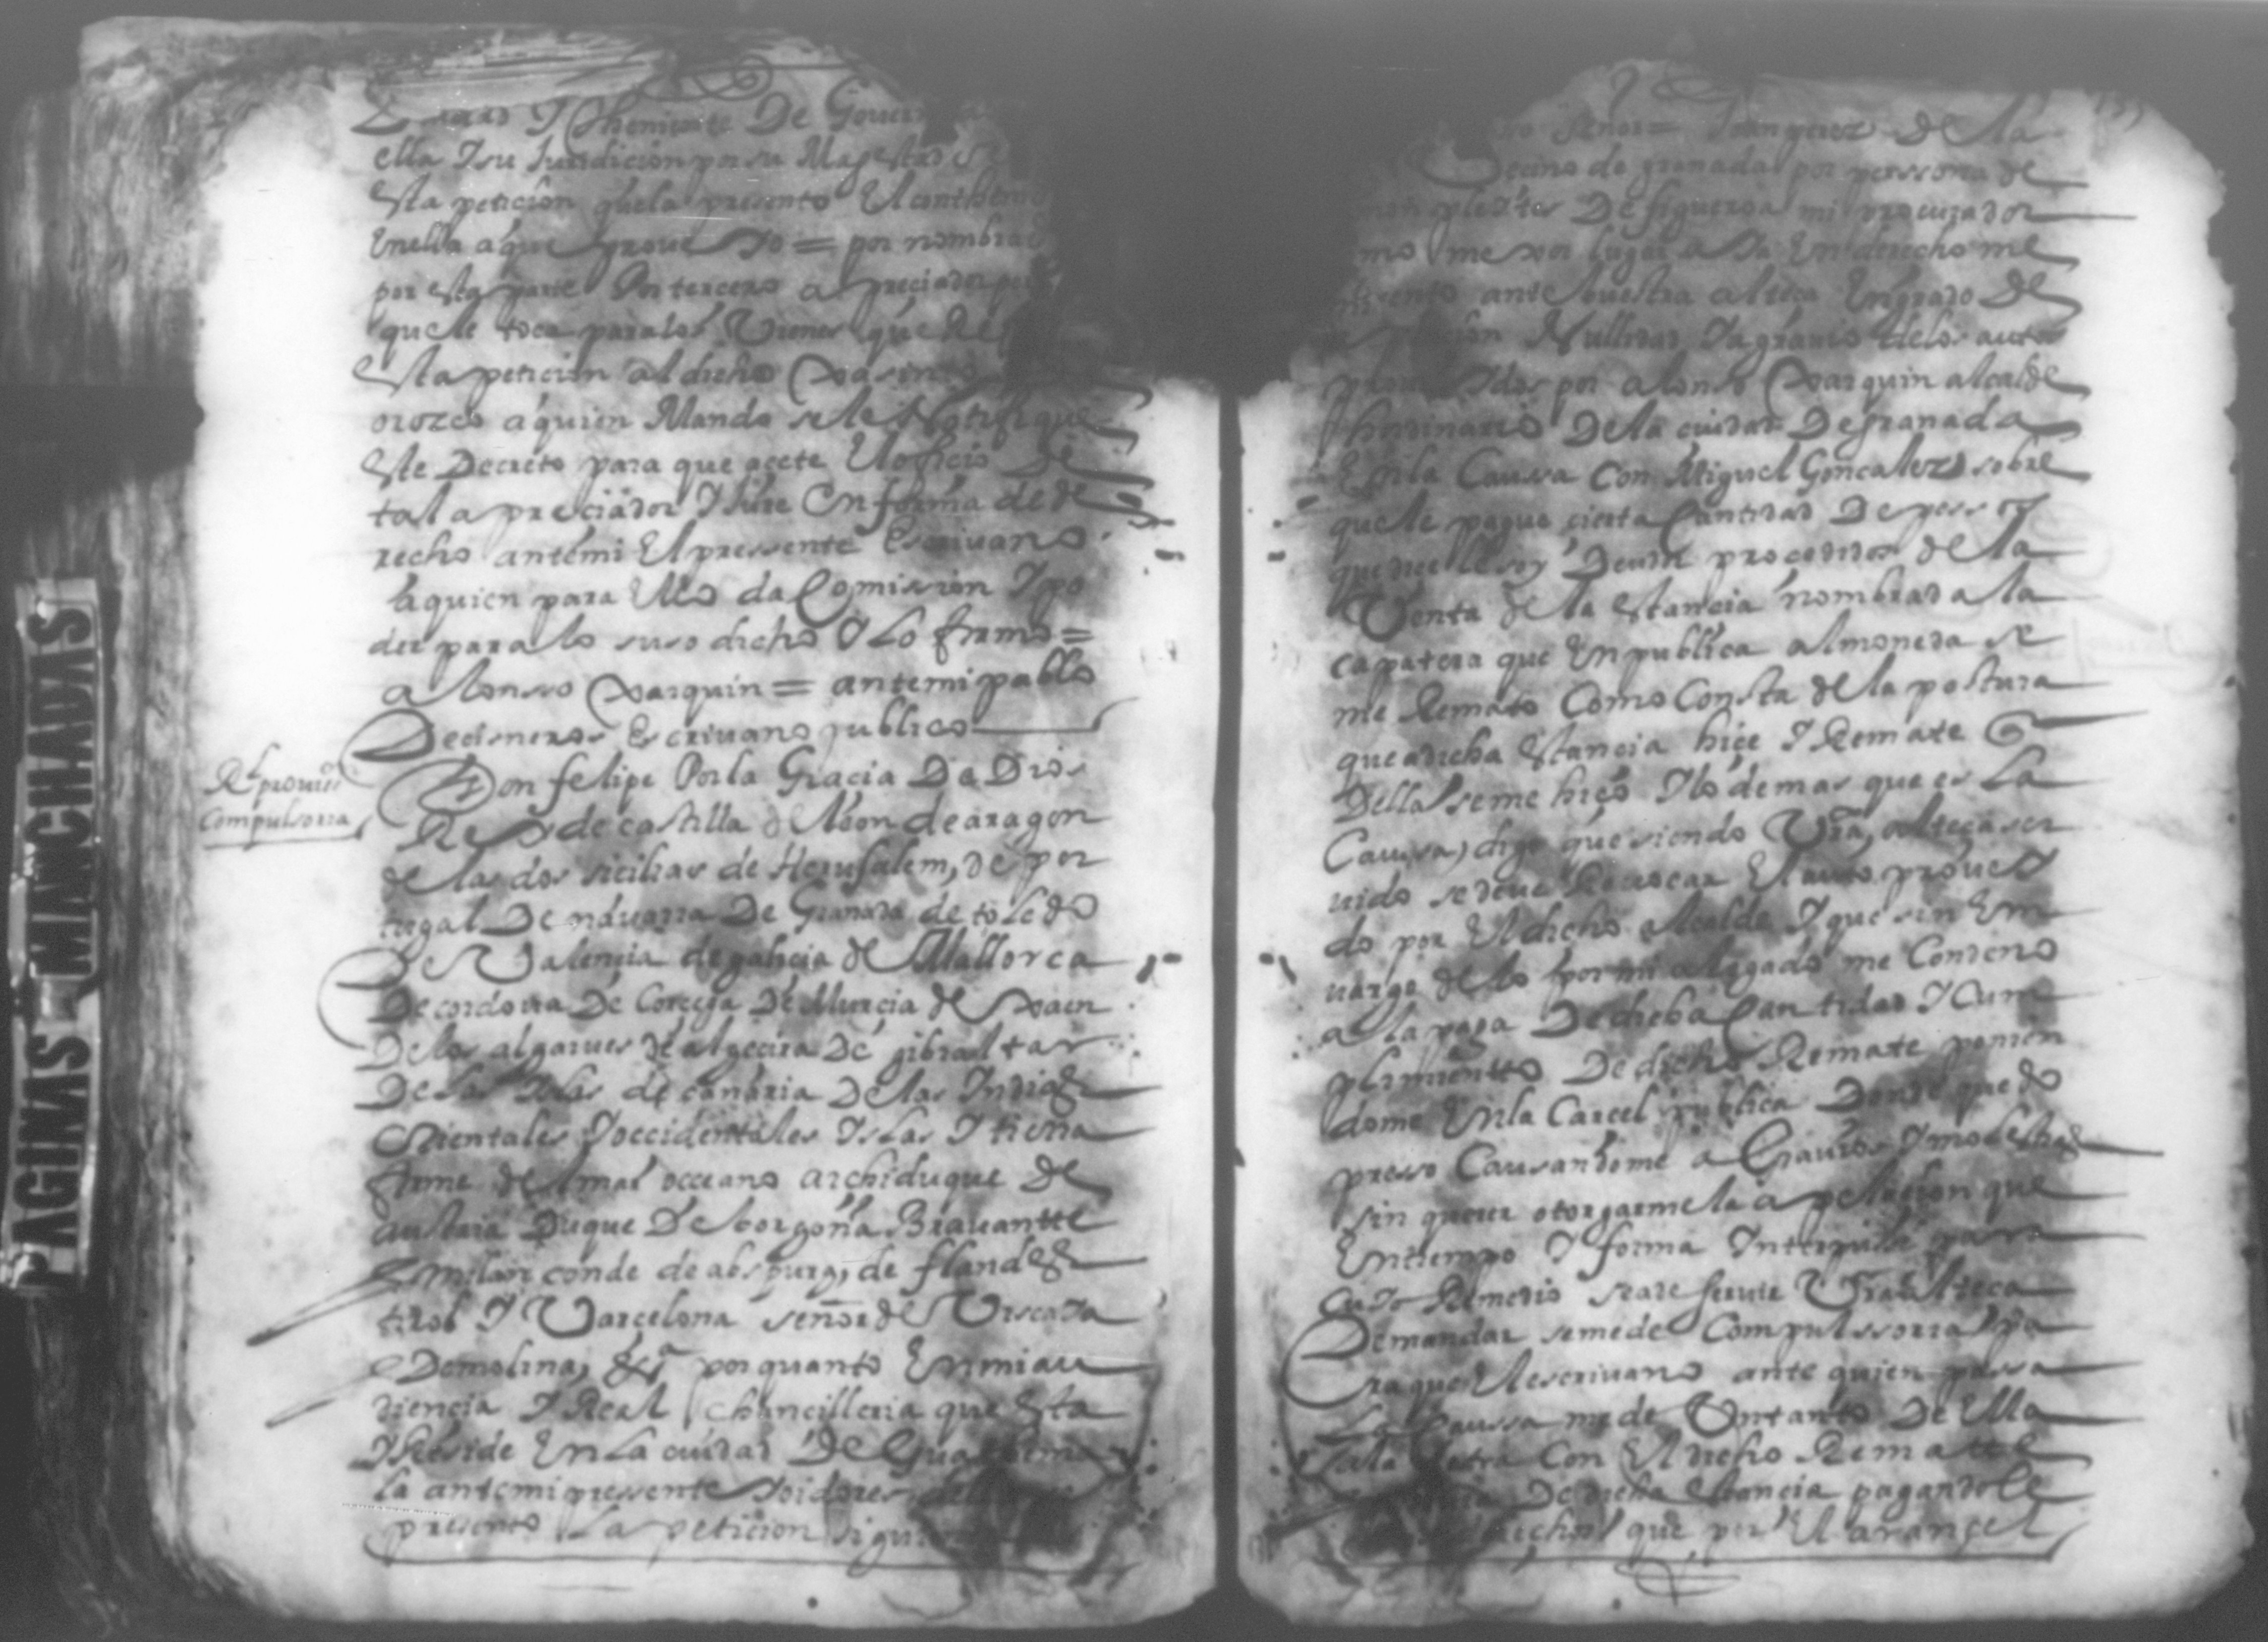 PAGINAS MANCHADAS
Y Theniente De Gouer
ella Y su Juridicion por su Magestad
Esta peticion q̃ la presento El conthen
Enella a que proueYo = por nombra
por esta parte Por tercero apreciador
que le toca para los Vienes que
Esta peticion al dicho
orozco a quien Mando se le Notifique
Este Decreto para que açete El oficio De
tal apreciador Y Jure En forma de de
recho ante mi El pressente Escriuano
a quien para Ello da Comission Y po
der para lo suso dicho Y Lo firmo =
alonsso Xarquin = ante mi pablo
De cisneros Escriuano publico
Rl prouis
Compulsoria
Don felipe Por la Gracia De Dios
Rey de castilla de Leon de aragon
de las dos sicilias de Herusalem, de por
tugal De nauarra De Granada de toledo
De Valencia de galicia de Mallorca
De cordoua De Corcega De Murcia de Xaen
De los algarues de algecira De gibraltar
De las Yslas de canaria De las Indias
Orientales Y occidentales Yslas Y tierra
firme del mar occeano archiduque de
austria Duque De borgoña Brauantte
E milan conde de abspurg, de flandes
tirol Y Varcelona señor de Viscaya
E De molina, &a por quanto En mi au
diencia Y Real chancilleria que Esta
Y Reside En La ciudad De Guathem
la ante mi pressente Y oidores
presento La peticion siguien
señor = Juan perez de la
Vecino de granada por perssona de
De figueroa mi procurador
me xor lugar aYa En derecho me
ante buestra alteça En grado De
Nullidad Y agrauio de los autos
por alonso Xarquin alcalde
hordinario De la ciudad De granada
En la Caussa Con Miguel Goncalez sobre
que le pague cierta Cantidad De pessos
que dice le soy Deudor procedidos de la
Venta de la Estancia nombrada la
capatera que En publica almoneda se
me Remato Como Consta de la postura
que a dicha Estancia hiçe Y Remate q
Della se me hiço Y lo demas que es La
Caussa, digo que siendo Vra, alteça ser
uido se deue Reuocar El auto proueY
do por El dicho Alcalde Y que sin Em
uargo de lo por mi alegado me Condeno
a la paga De dicha Cantidad Y Cum
plimientto De dicho Remate ponien
dome En la Carcel publica Donde quedo
presso Causandome aGrauios Y molestias
sin querer otorgarme la apelacion que
En tiempo Y forma Interpuse para
CuYo Remedio se a de seruir Vra alteca
De mandar se me de Compulssoria pa
ra que El escriuano ante quien passa
La Caussa me de Un tanto De Ella
a la letra Con El dicho Rematte
De dicha Estancia pagandole
que por El arançel